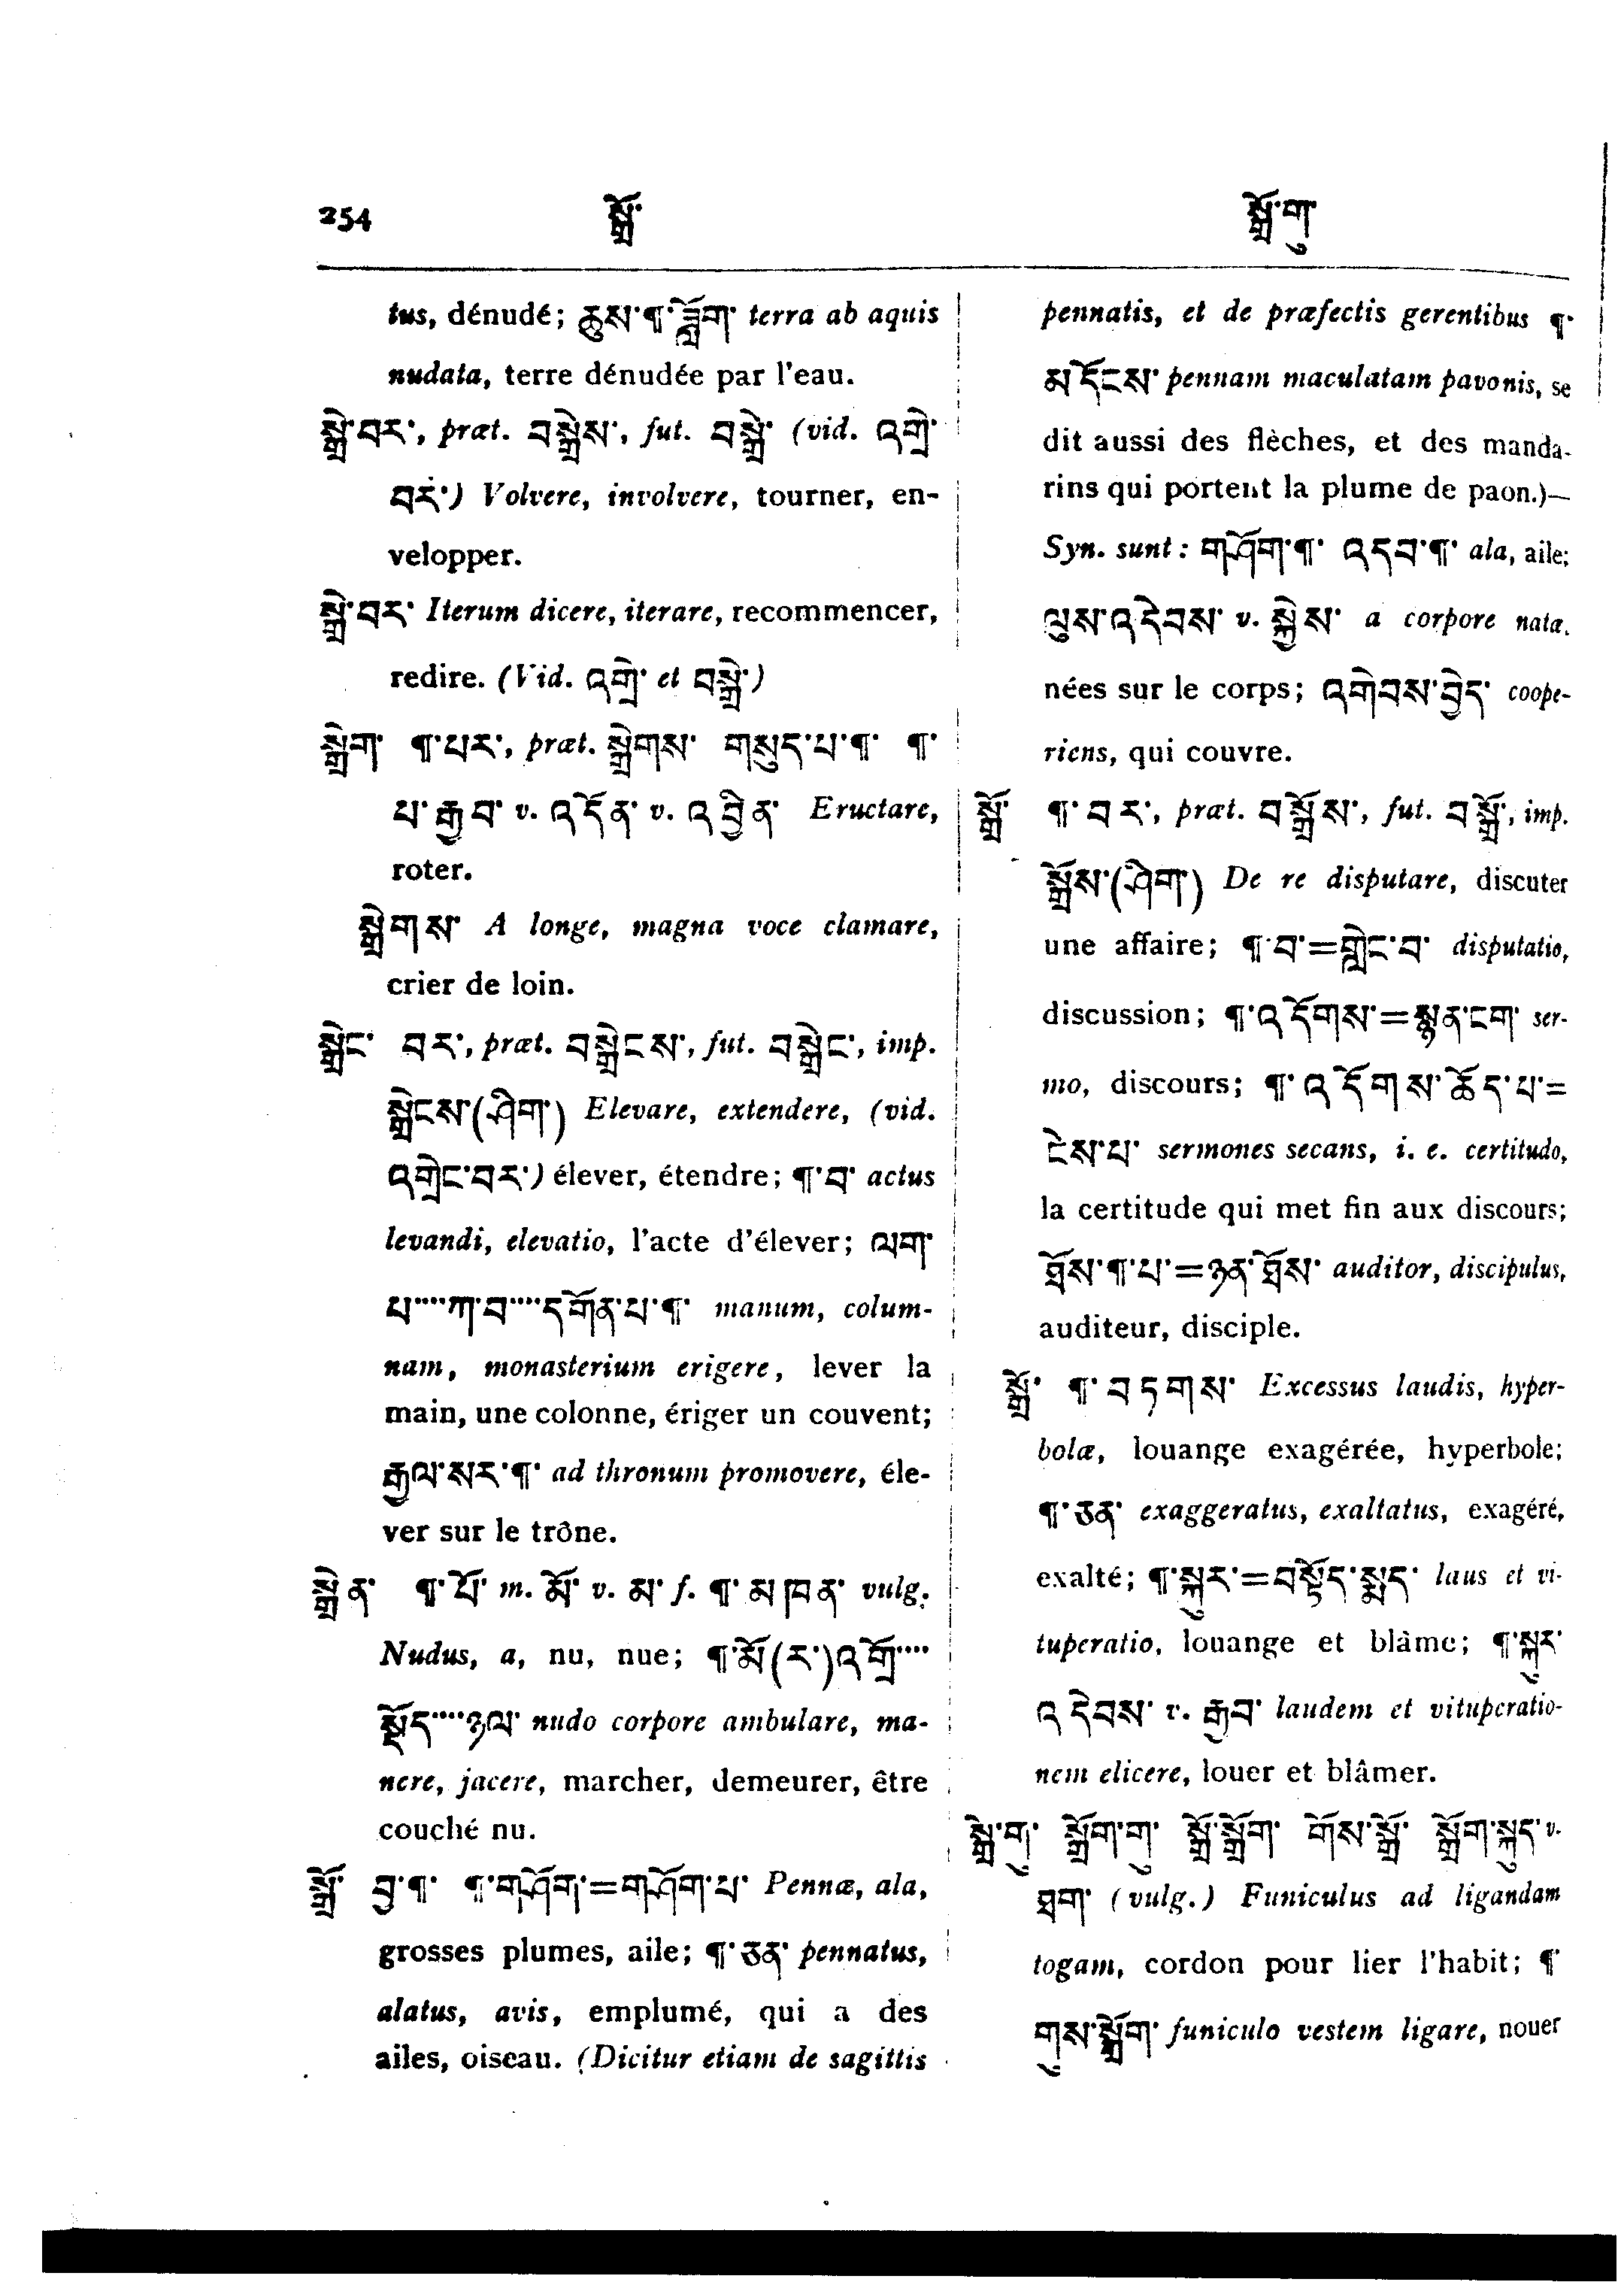 254 སྒྲོ་ སྒྲོ་གུ་
tus, dénudé; ཆུས་¶་ཟློག་ terra ab aquis
nudata, terre dénudée par l'eau.
སྒྲེ་བར་, præt. བསྒྲེས་, fut. བསྒྲེ་ (vid. འགྲེ་
བར་) Volvere, involvere, tourner, en-
velopper.
སྒྲེ་བར་ Iterum dicere, iterare, recommencer,
redire. (Vid. འགྲེ་ et བསྒྲེ་)
སྒྲེག་ ¶་པར་, præt. སྒྲེགས་ གསུད་པ་¶་ ¶་
པ་རྒྱབ་ v. འདོན་ v. འབྱིན་ Eructare,
roter.
སྒྲེགས་ A longe, magna voce clamare,
crier de loin.
སྒྲེང་ བར་, præt. བསྒྲེངས་, fut. བསྒྲེང་, imp.
སྒྲེངས་(ཤིག་) Elevare, extendere, (vid.
འགྲེང་བར་) élever, étendre; ¶་བ་ actus
levandi, elevatio, l'acte d'élever; ལག་
པ་····ཀ་བ་····དགོན་པ་¶་ manum, colum-
nam, monasterium erigere, lever la
main, une colonne, ériger un couvent;
རྒྱལ་སར་¶་ ad thronum promovere, éle-
ver sur le trône.
སྒྲེན་ ¶་པོ་ m. མོ་ v. མ་ f. ¶་མཁན་ vulg.
Nudus, a, nu, nue; ¶་མོ(ར་)འགྲོ་····
སྡོད་····ཉལ་ nudo corpore ambulare, ma-
nere, jacere, marcher, demeurer, être
couché nu.
སྒྲོ་ བྱ་¶་ ¶་གཤོག་=གཤོག་པ་ Pennæ, ala,
grosses plumes, aile; ¶་ཅན་ pennatus,
alatus, avis, emplumé, qui a des
ailes, oiseau. (Dicitur etiam de sagittis
pennatis, et de præfectis gerentibus ¶་
མདོངས་ pennam maculatam pavonis, se
dit aussi des flèches, et des manda-
rins qui portent la plume de paon.)—
Syn. sunt: གཤོག་¶་ འདབ་¶་ ala, aile;
ལུས་འདེབས་ v. སྐྱེས་ a corpore nata,
nées sur le corps; འགེབས་བྱེད་ coope-
riens, qui couvre.
སྒྲོ་ ¶་བར་, præt. བསྒྲོས་, fut. བསྒྲོ་, imp.
སྒྲོས་(ཤིག་) De re disputare, discuter
une affaire; ¶་བ་=གླེང་བ་ disputatio,
discussion; ¶་འདོགས་=སྙན་ངག་ ser-
mo, discours; ¶་འདོགས་ཆོད་པ་=
ངེས་པ་ sermones secans, i. e. certitudo,
la certitude qui met fin aux discours;
ཐོས་¶་པ་=ཉན་ཐོས་ auditor, discipulus,
auditeur, disciple.
སྒྲོ་ ¶་བཏགས་ Excessus laudis, hyper-
bolæ, louange exagérée, hyperbole;
¶་ཅན་ exaggeratus, exaltatus, exagéré,
exalté; ¶་སྐུར་=བསྟོད་སྨད་ laus et vi-
tuperatio, louange et blâme; ¶་སྐུར་
འདེབས་ v. རྒྱབ་ laudem et vituperatio-
nem elicere, louer et blâmer.
སྒྲེ་གུ་ སྒྲོག་གུ་ སྒྲོ་སྒྲོག་ གོས་སྒྲོ་ སྒྲོག་སྐུད་ v.
ཐག་ (vulg.) Funiculus ad ligandam
togam, cordon pour lier l'habit; ¶
གུས་སྒྲོག་ funiculo vestem ligare, nouer